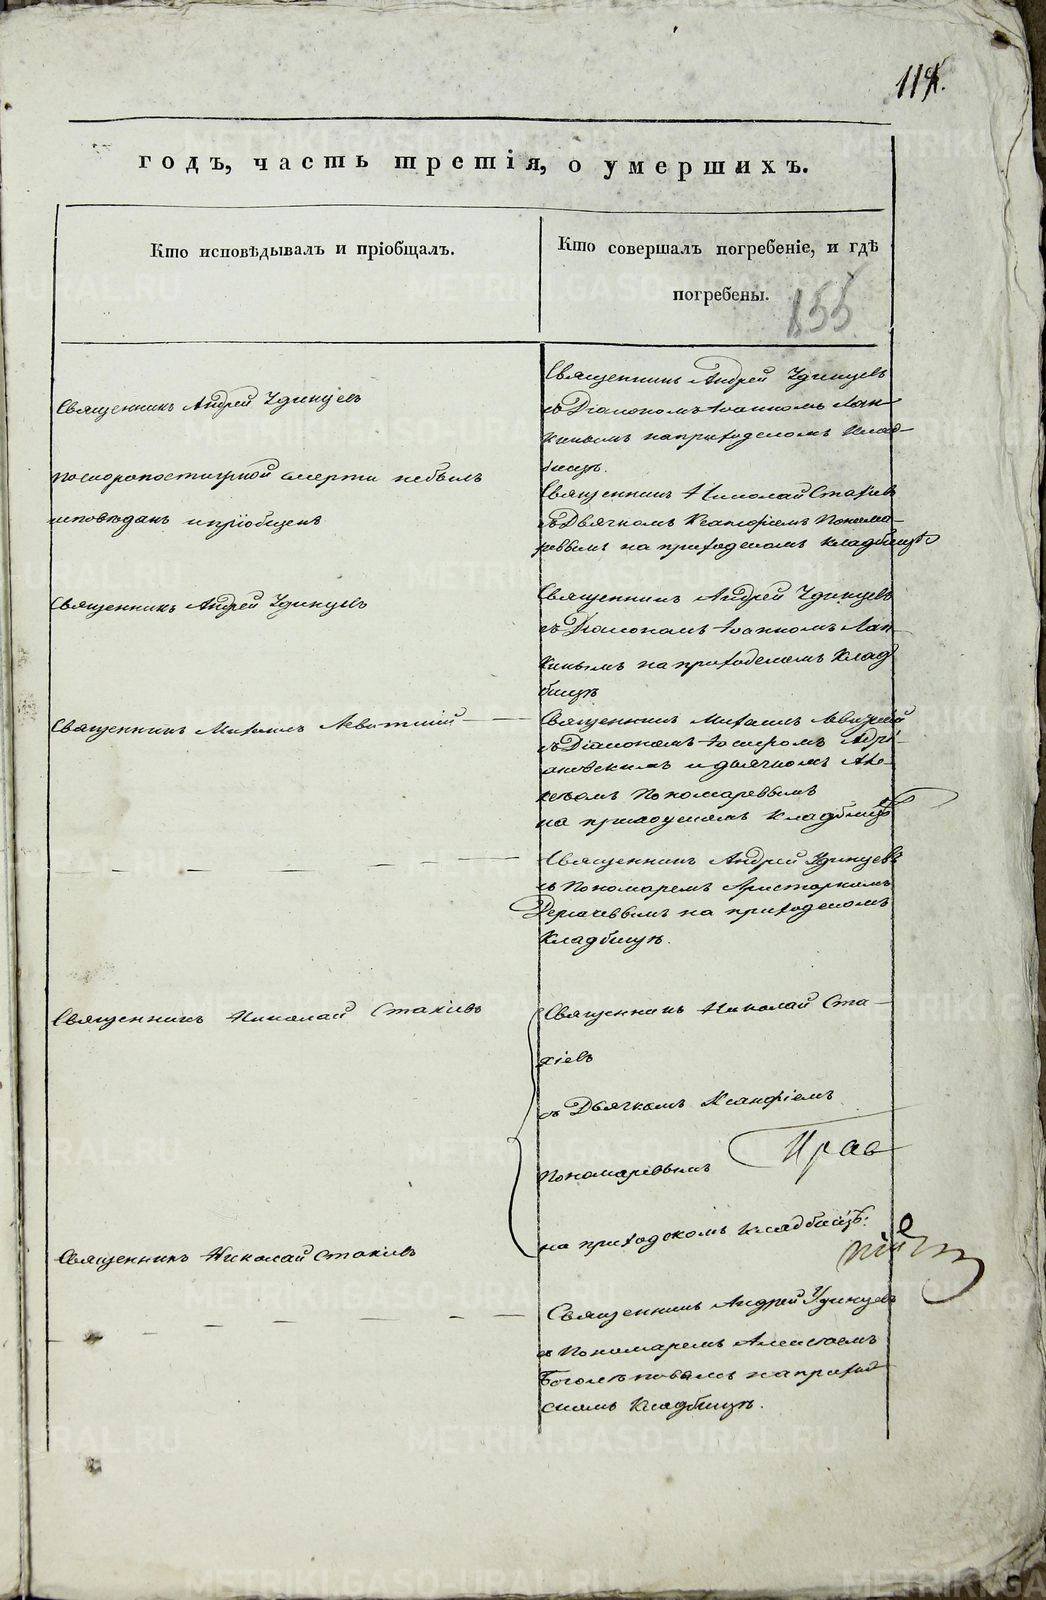 114.
годъ, часть третія, о умершихъ.
Кто исповѣдывалъ и пріобщалъ.
Кто совершалъ погребеніе, и гдѣ
погребены.
155
Священникъ Андрей Удинцевъ
Священникъ Андрей Удинцевъ
съ Діакономъ Іоанномъ Лап-
кинымъ на приходскомъ клад-
бищѣ.
по скоропостижной смерти небылъ
исповѣданъ и пріобщенъ
Священникъ Николай Стахіевъ
съ Дьячкомъ Ксанфіемъ Понома-
ревымъ на приходскомъ кладбищѣ
Священникъ Андрей Удинцевъ
Священникъ Андрей Удинцевъ
съ Діакономъ Іоанномъ Лап
кинымъ на приходскомъ клад
бищѣ
Священникъ Михаилъ Левитскій
Священникъ Михаилъ Левицкій
съ Діакономъ
и дьячкомъ Але-
ксѣемъ Пономаревымъ
на приходскомъ кладбищѣ
Священникъ Андрей Удинцевъ
съ Пономаремъ Аристархомъ
на приходскомъ
кладбищѣ.
Священникъ Николай Стахіевъ
Священникъ Николай Ста-
хіевъ
съ Дьячкомъ Ксанфіемъ
Пономаревымъ
на приходскомъ кладбищѣ.
Священникъ Николай Стахіевъ
Священникъ Андрей Удинцевъ
съ Пономаремъ Алексѣемъ
Боголѣповымъ на приход
скомъ кладбищѣ.
METRIKI.GASO-URAL.RU